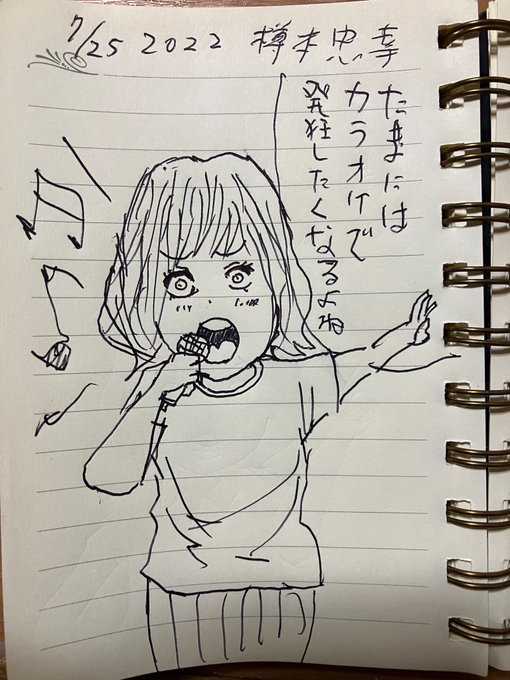 7/25 2022 樽本忠幸
たまには
カラオケで
発狂したくなるよね